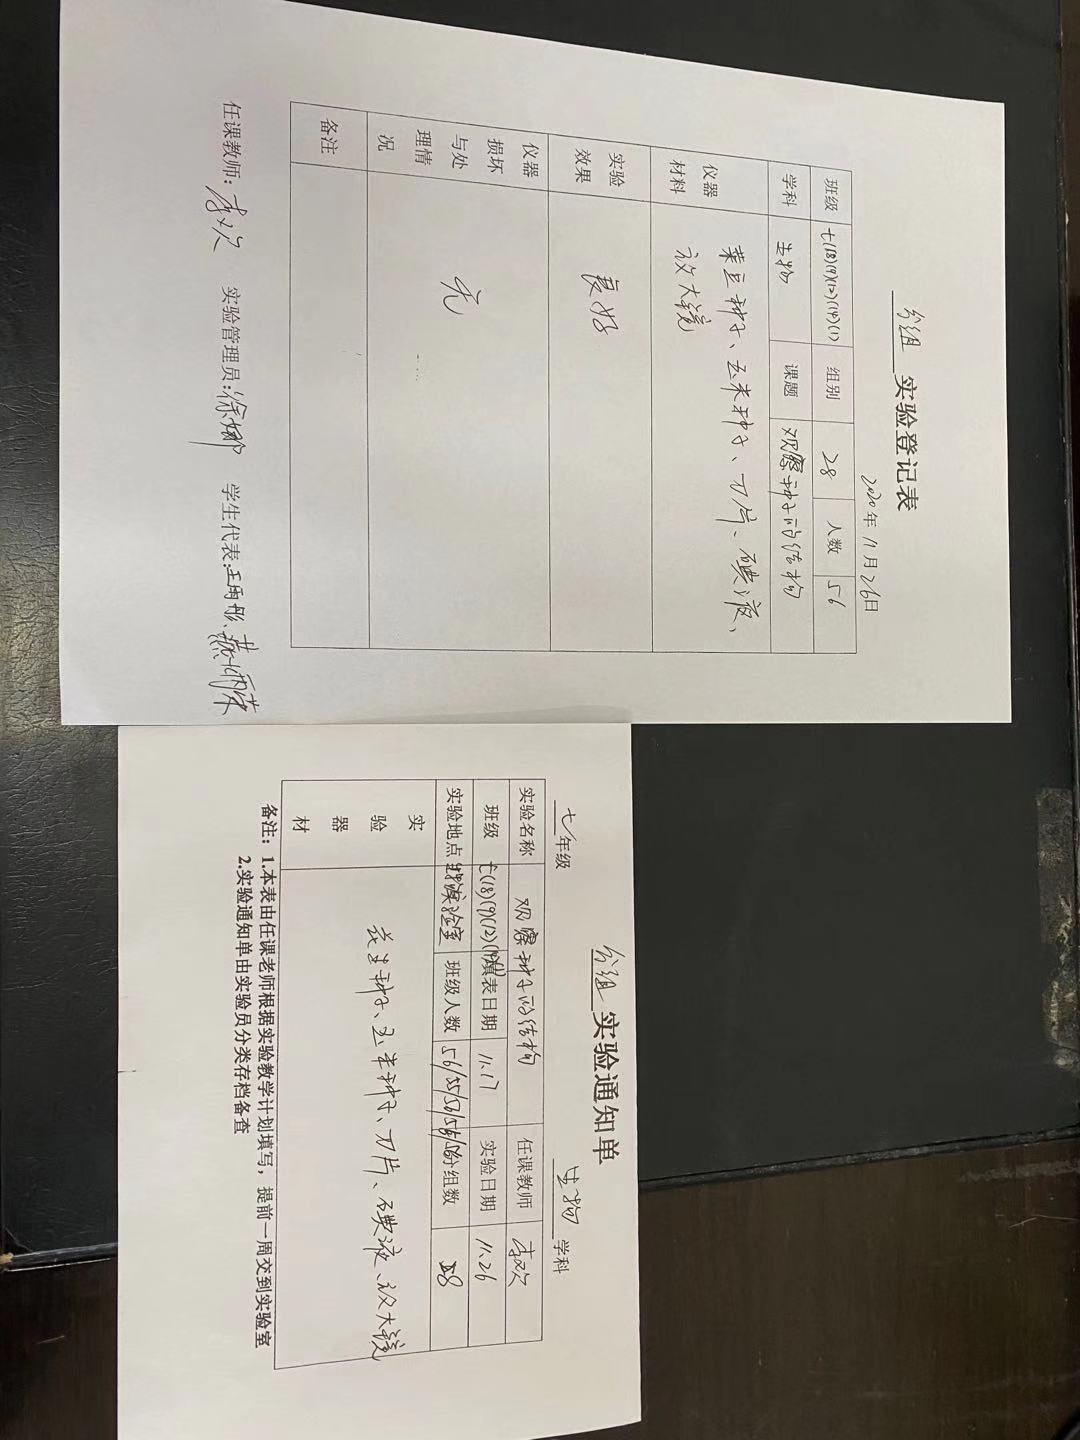 分组 实验登记表
2020年11月26日
班级 七(18)(9)(12)(14)(1) 组别 28 人数 56
学科 生物 课题 观察种子的结构
仪器材料 菜豆种子、玉米种子、刀片、碘液、
放大镜
实验效果 良好
仪器损坏与处理情况 无
备注
任课教师:李欢 实验管理员:徐娜 学生代表:王雨彤、
分组 实验通知单
七年级 生物 学科
实验名称 观察种子的结构 任课教师 李欢
班级 七(18)(9)(12)(14)(1) 填表日期 11.17 实验日期 11.26
实验地点 生物实验室 班级人数 56/55/56/56/56 分组数 28
实验器材 花生种子、玉米种子、刀片、碘液、放大镜
备注:1.本表由任课老师根据实验教学计划填写,提前一周交到实验室
2.实验通知单由实验员分类存档备查